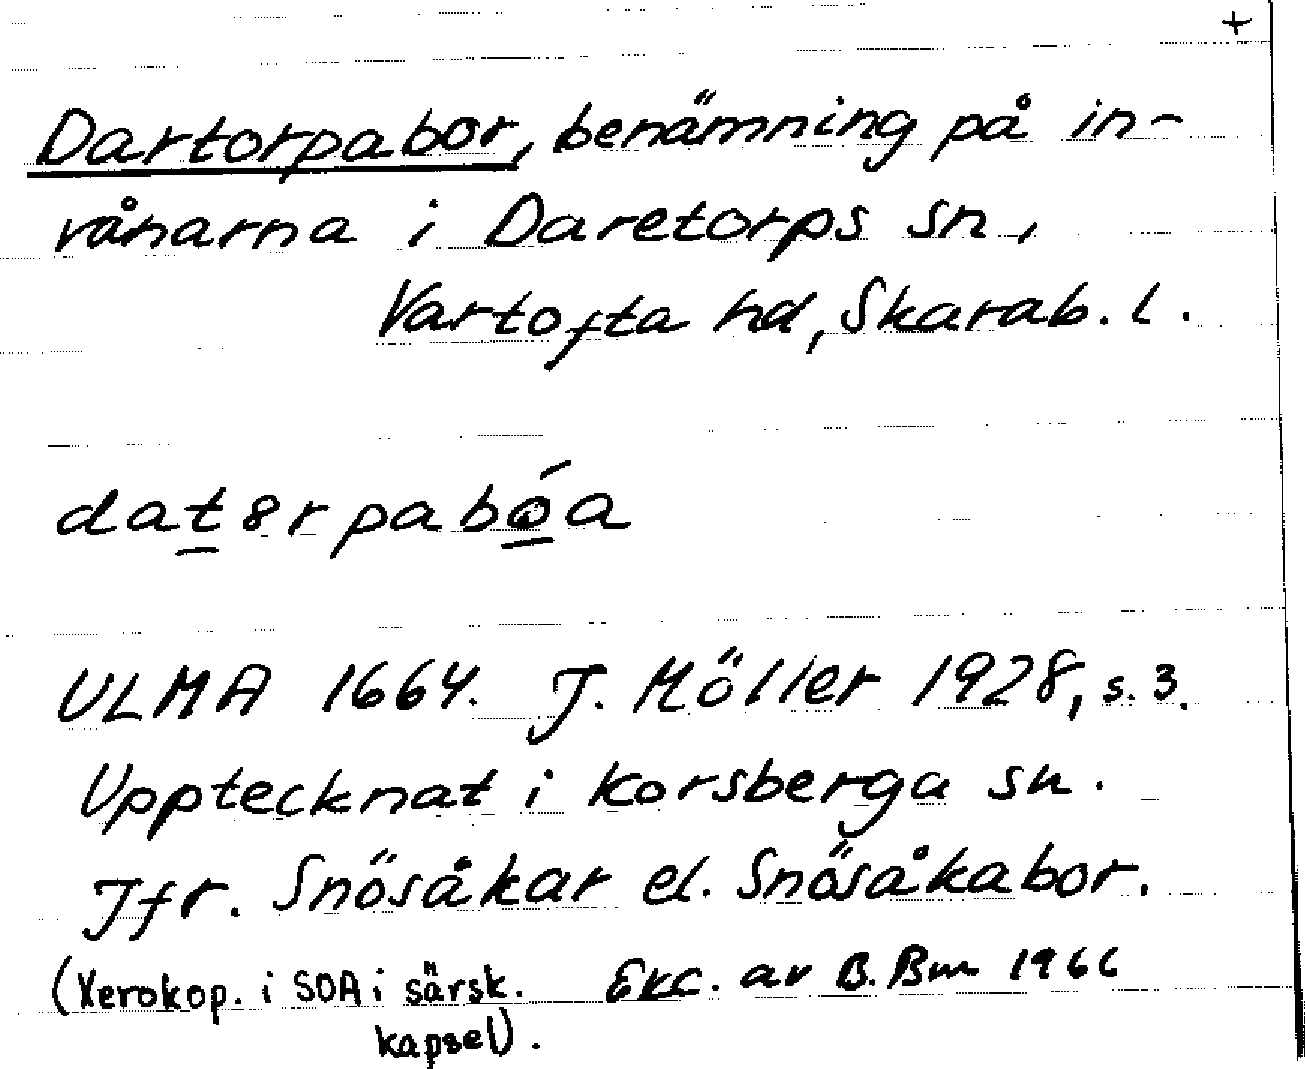 +
Dartorpabor, benämning på in-
vånarna i Daretorps sn,
Vartofta hd, Skarab. l.
dat8rpabǿa
ULMA 1664. J. Möller 1928, s. 3.
Upptecknat i Korsberga sn.
Jfr. Snösåkar el. Snösåkabor.
(Xerokop. i SOA i särsk. Exc. av B. Bm 1966
kapsel).